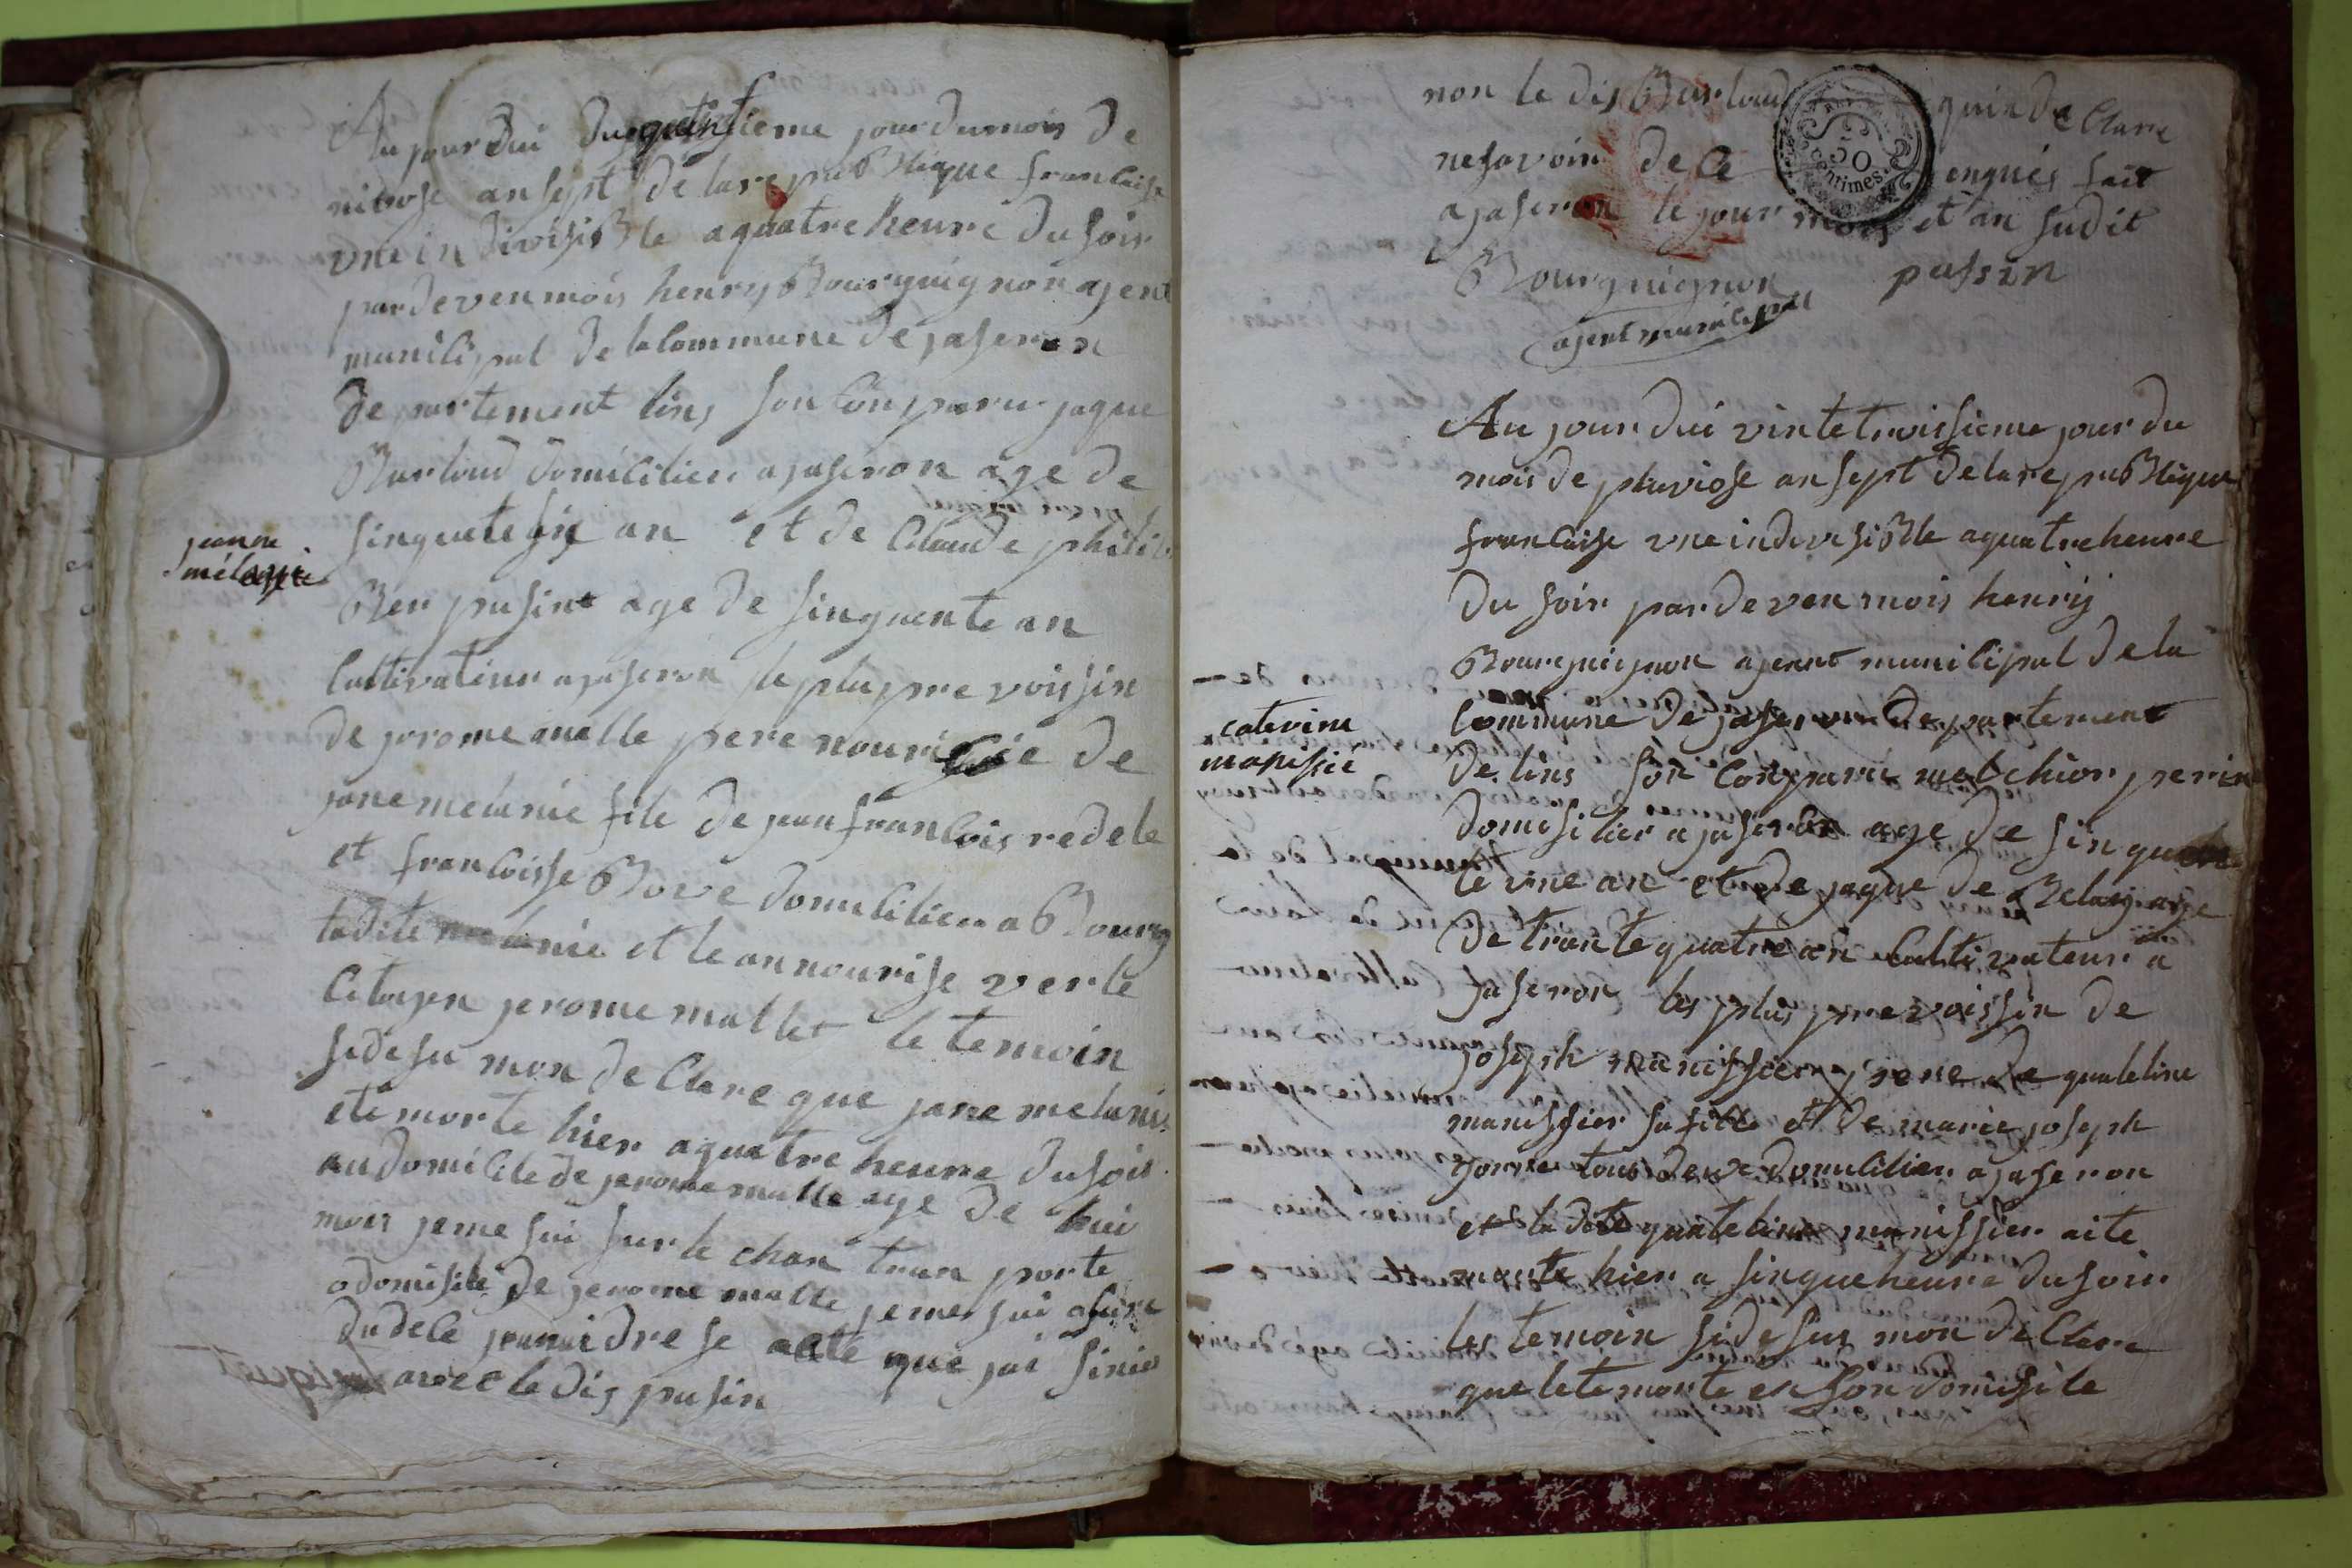 Au jour dui du jour du mois de
nivose an sept de la republique francaise
une in divisible a quatre heure du soir
par deven mois henry Bourguignon ajent
municipal de la commune de jaseron
departement lins son conparu jaque
Barloud domicilier a jaseron age de
sinquate six an et de Claude philib
Ber pusint age de sinquente an
Cultivateur a jaseron le plu pre voissin
de jerome malle pere nouri de
jeanne
mélanie
jane melanie file de jean francois redele
et francoisse Bove domicilier a Bourg
ladite melanie et le an nourise ver le
Citoyen jerome mallet le temoin
sidesu mon de Clare que jane melani
ete morte hier a quatre heure du soir
au domicile de jerome malle age de hui
mois je me sui sur le chan tran porte
o domisile de jerome malle je me sui asure
du dece jeanai dre se acte que jai sinie
avec le dis pusin
non le dis Barloud quin de Clare
ne savoir de ce enquis fait
a jaseron le jour mois et an sudit
50
centimes
Bourguignon pussin
ajent municipal
Au jour dui vinte troissieme jour du
mois de pluviose an sept de la republique
francaise une indivisible a quatre heure
du soir par deven mois henrij
Bourguignon ajent municipal de la
commune de jaseron departement
de lins son conparu melchior perin
caterine
manissié
domisilier a jaseron age de sinquan
te une an et de jaque de Belaij age
de trante quatre an Cultivateur a
jaseron les plus pre voissin de
joseph manissier pere de quateline
manissier sa fille et de marie joseph
gorre tous deux domicilier a jaseron
et la dite quateline manissier aite
morte hier a sinque heure du soir
les temoin sidesus mon de Clare
quelete morte en son domisile